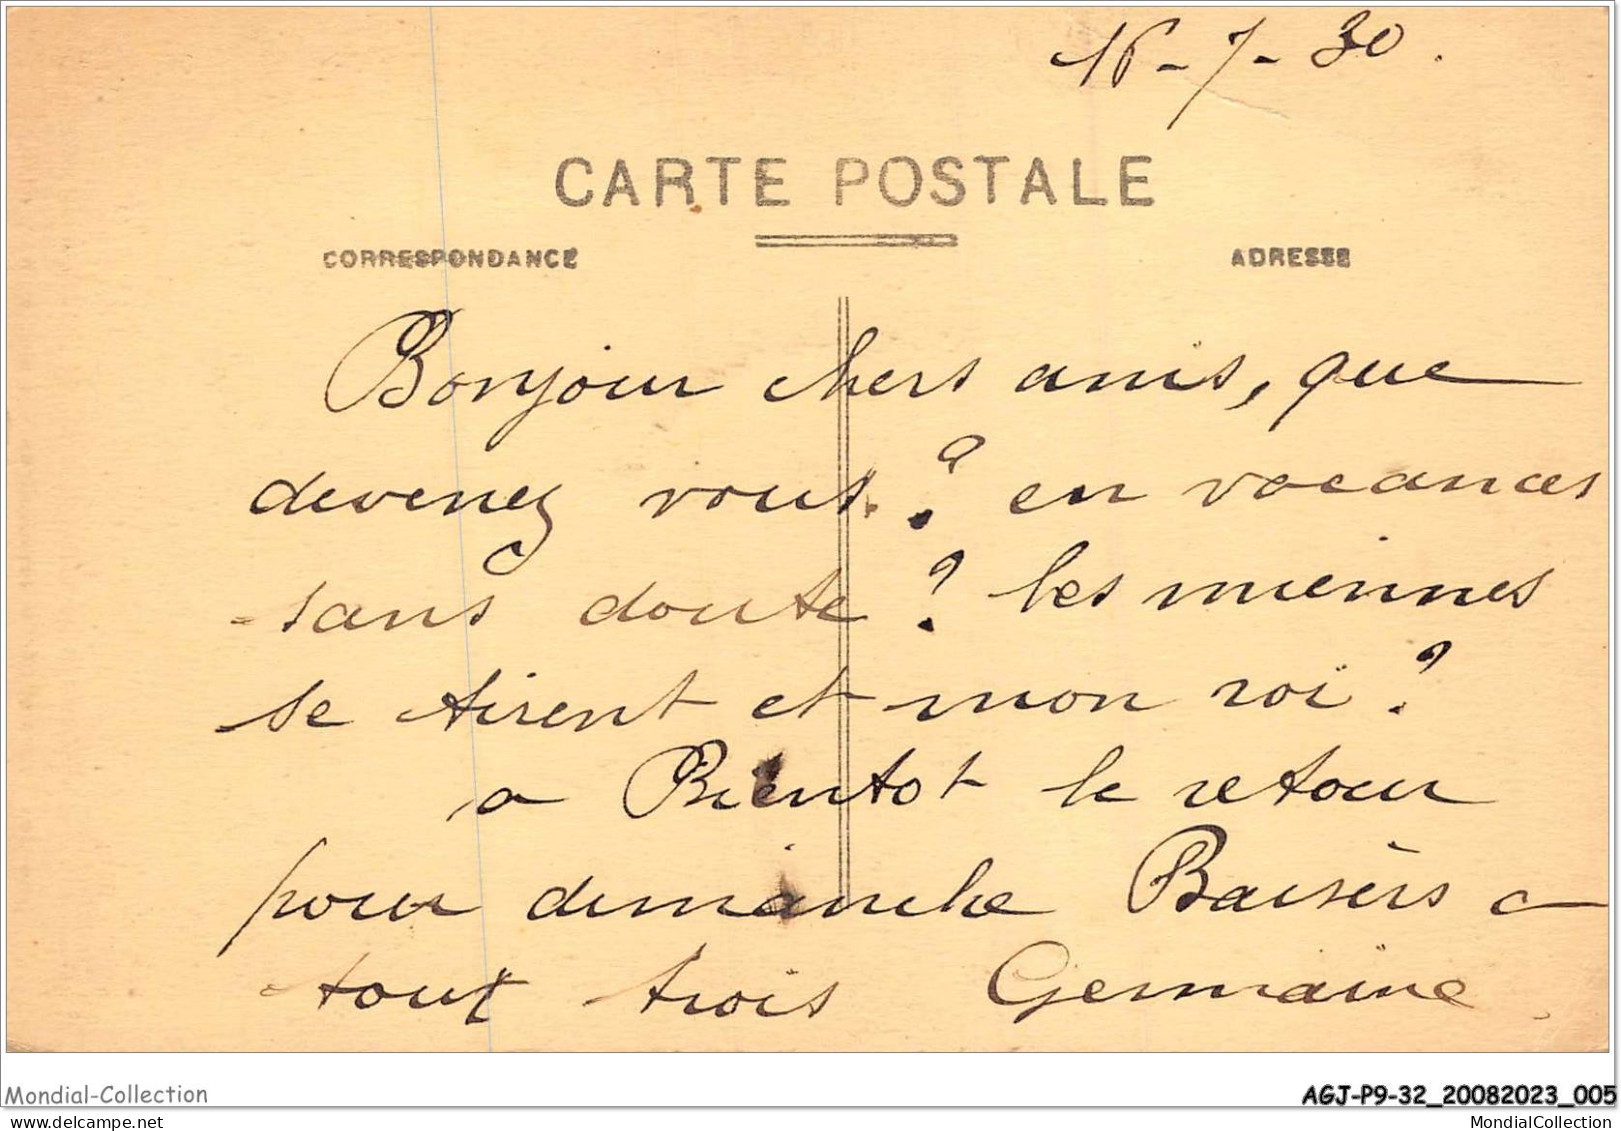 16-7-30.
CARTE POSTALE
CORRESPONDANCE
ADRESSE
Bonjour chers amis, que
devenez vous ? en vacances
sans doute ? les miennes
se tirent et mon roi ?
a Bientot le retour
pour dimanche Baisers a
tout trois Germaine
Mondial-Collection
AGJ-P9-32_20082023_005
MondialCollection
MondialCollection